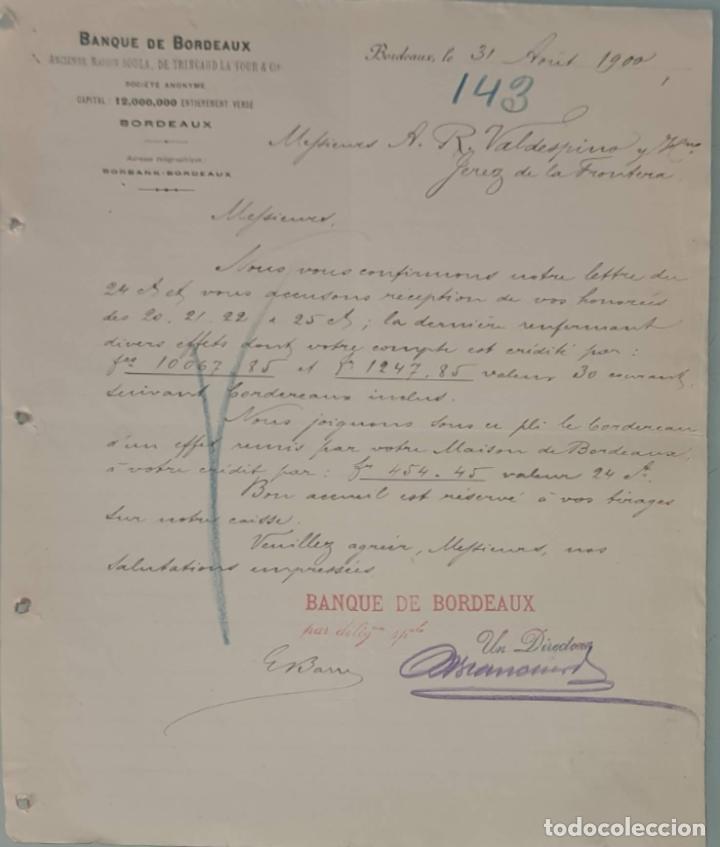 BANQUE DE BORDEAUX
ANCIENNE MAISON SOULA, DE TRINCAUD LA TOUR & Cie
SOCIÉTÉ ANONYME
CAPITAL : 12,000,000 ENTIÈREMENT VERSÉ
BORDEAUX
Adresse télégraphique :
BORBANK-BORDEAUX
Bordeaux, le 31 Août 1900
143
Messieurs A. R. Valdespino y Hno
Jerez de la Frontera
Messieurs,
Nous vous confirmons notre lettre du
24 ct et vous accusons réception de vos honorées
des 20. 21. 22 & 25 ct ; la dernière renfermant
divers effets dont votre compte est crédité par :
fcs 10067.85 et fr 1247.85 valeur 30 courant,
suivant bordereaux inclus.
Nous joignons sous ce pli le bordereau
d'un effet remis par votre Maison de Bordeaux,
à votre crédit par : fr 454.45 valeur 24 ct.
Bon accueil est réservé à vos tirages
sur notre caisse.
Veuillez agréer, Messieurs, nos
salutations empressées
BANQUE DE BORDEAUX
par délégon sple
Un Directeur
todocoleccion
todocoleccion.net